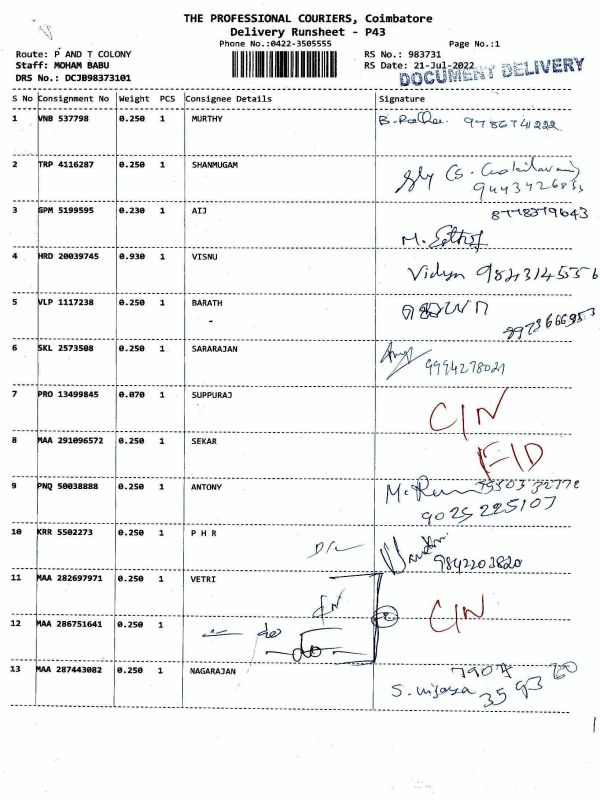 THE PROFESSIONAL COURIERS, Coimbatore
Delivery Runsheet - P43
Phone No.:0422-3505555 Page No.:1
Route: P AND T COLONY RS No.: 983731
Staff: MOHAM BABU RS Date: 21-Jul-2022
DRS No.: DCJB98373101 DOCUMENT DELIVERY
S No Consignment No Weight PCS Consignee Details Signature
1 VNB 537798 0.250 1 MURTHY
2 TRP 4116287 0.250 1 SHANMUGAM
3 GPM 5199595 0.230 1 AIJ 8778379643
4 HRD 20039745 0.930 1 VISNU Vidya 9843145556
5 VLP 1117238 0.250 1 BARATH
6 SKL 2573508 0.250 1 SARARAJAN 9994278021
7 PRO 13499845 0.070 1 SUPPURAJ CIN
8 MAA 291096572 0.250 1 SEKAR
9 PNQ 50038888 0.250 1 ANTONY
9025225107
10 KRR 5502273 0.250 1 P H R
9842203820
11 MAA 282697971 0.250 1 VETRI
12 MAA 286751641 0.250 1 do CIN
do
13 MAA 287443082 0.250 1 NAGARAJAN
S. vijaya